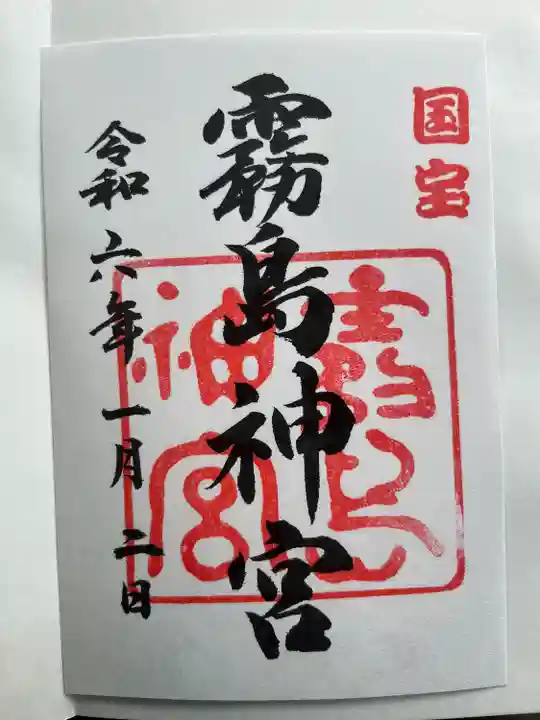 国宝
霧島神宮
霧島神宮
令和六年一月二日